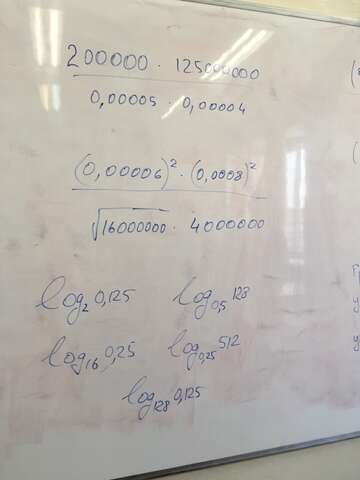 200000 · 125000000
0,00005 · 0,00004
(0,00006)² · (0,0008)²
√16000000 · 4000000
log₂ 0,125 log₀,₅ 128
log₁₆ 0,25 log₀,₂₅ 512
log₁₂₈ 0,125